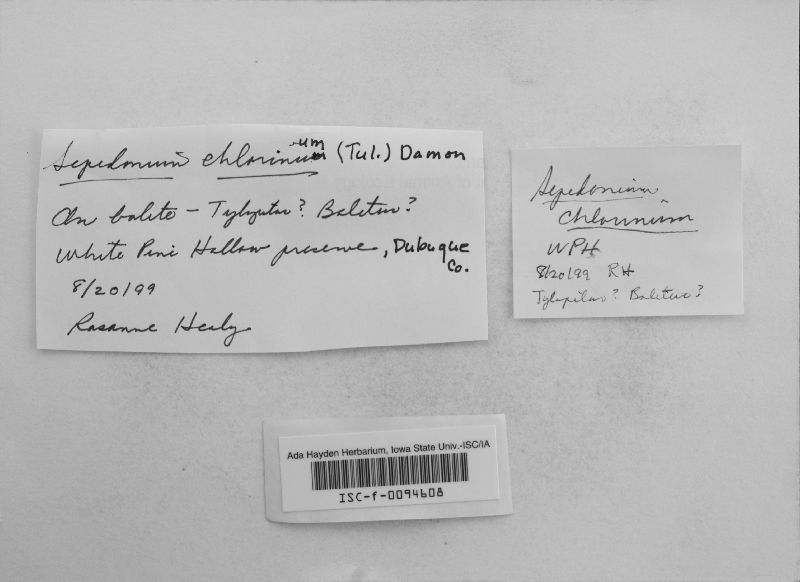 Sepedonium chlorinum (Tul.) Damon
On bolete - Tylopilus? Boletus?
White Pine Hollow preserve, Dubuque Co.
8/20/99
Rosanne Healy
Sepedonium
chlorinum
WPH
8/20/99 RH
Tylopilus? Boletus?
Ada Hayden Herbarium, Iowa State Univ.-ISC/IA
ISC-f-0094608